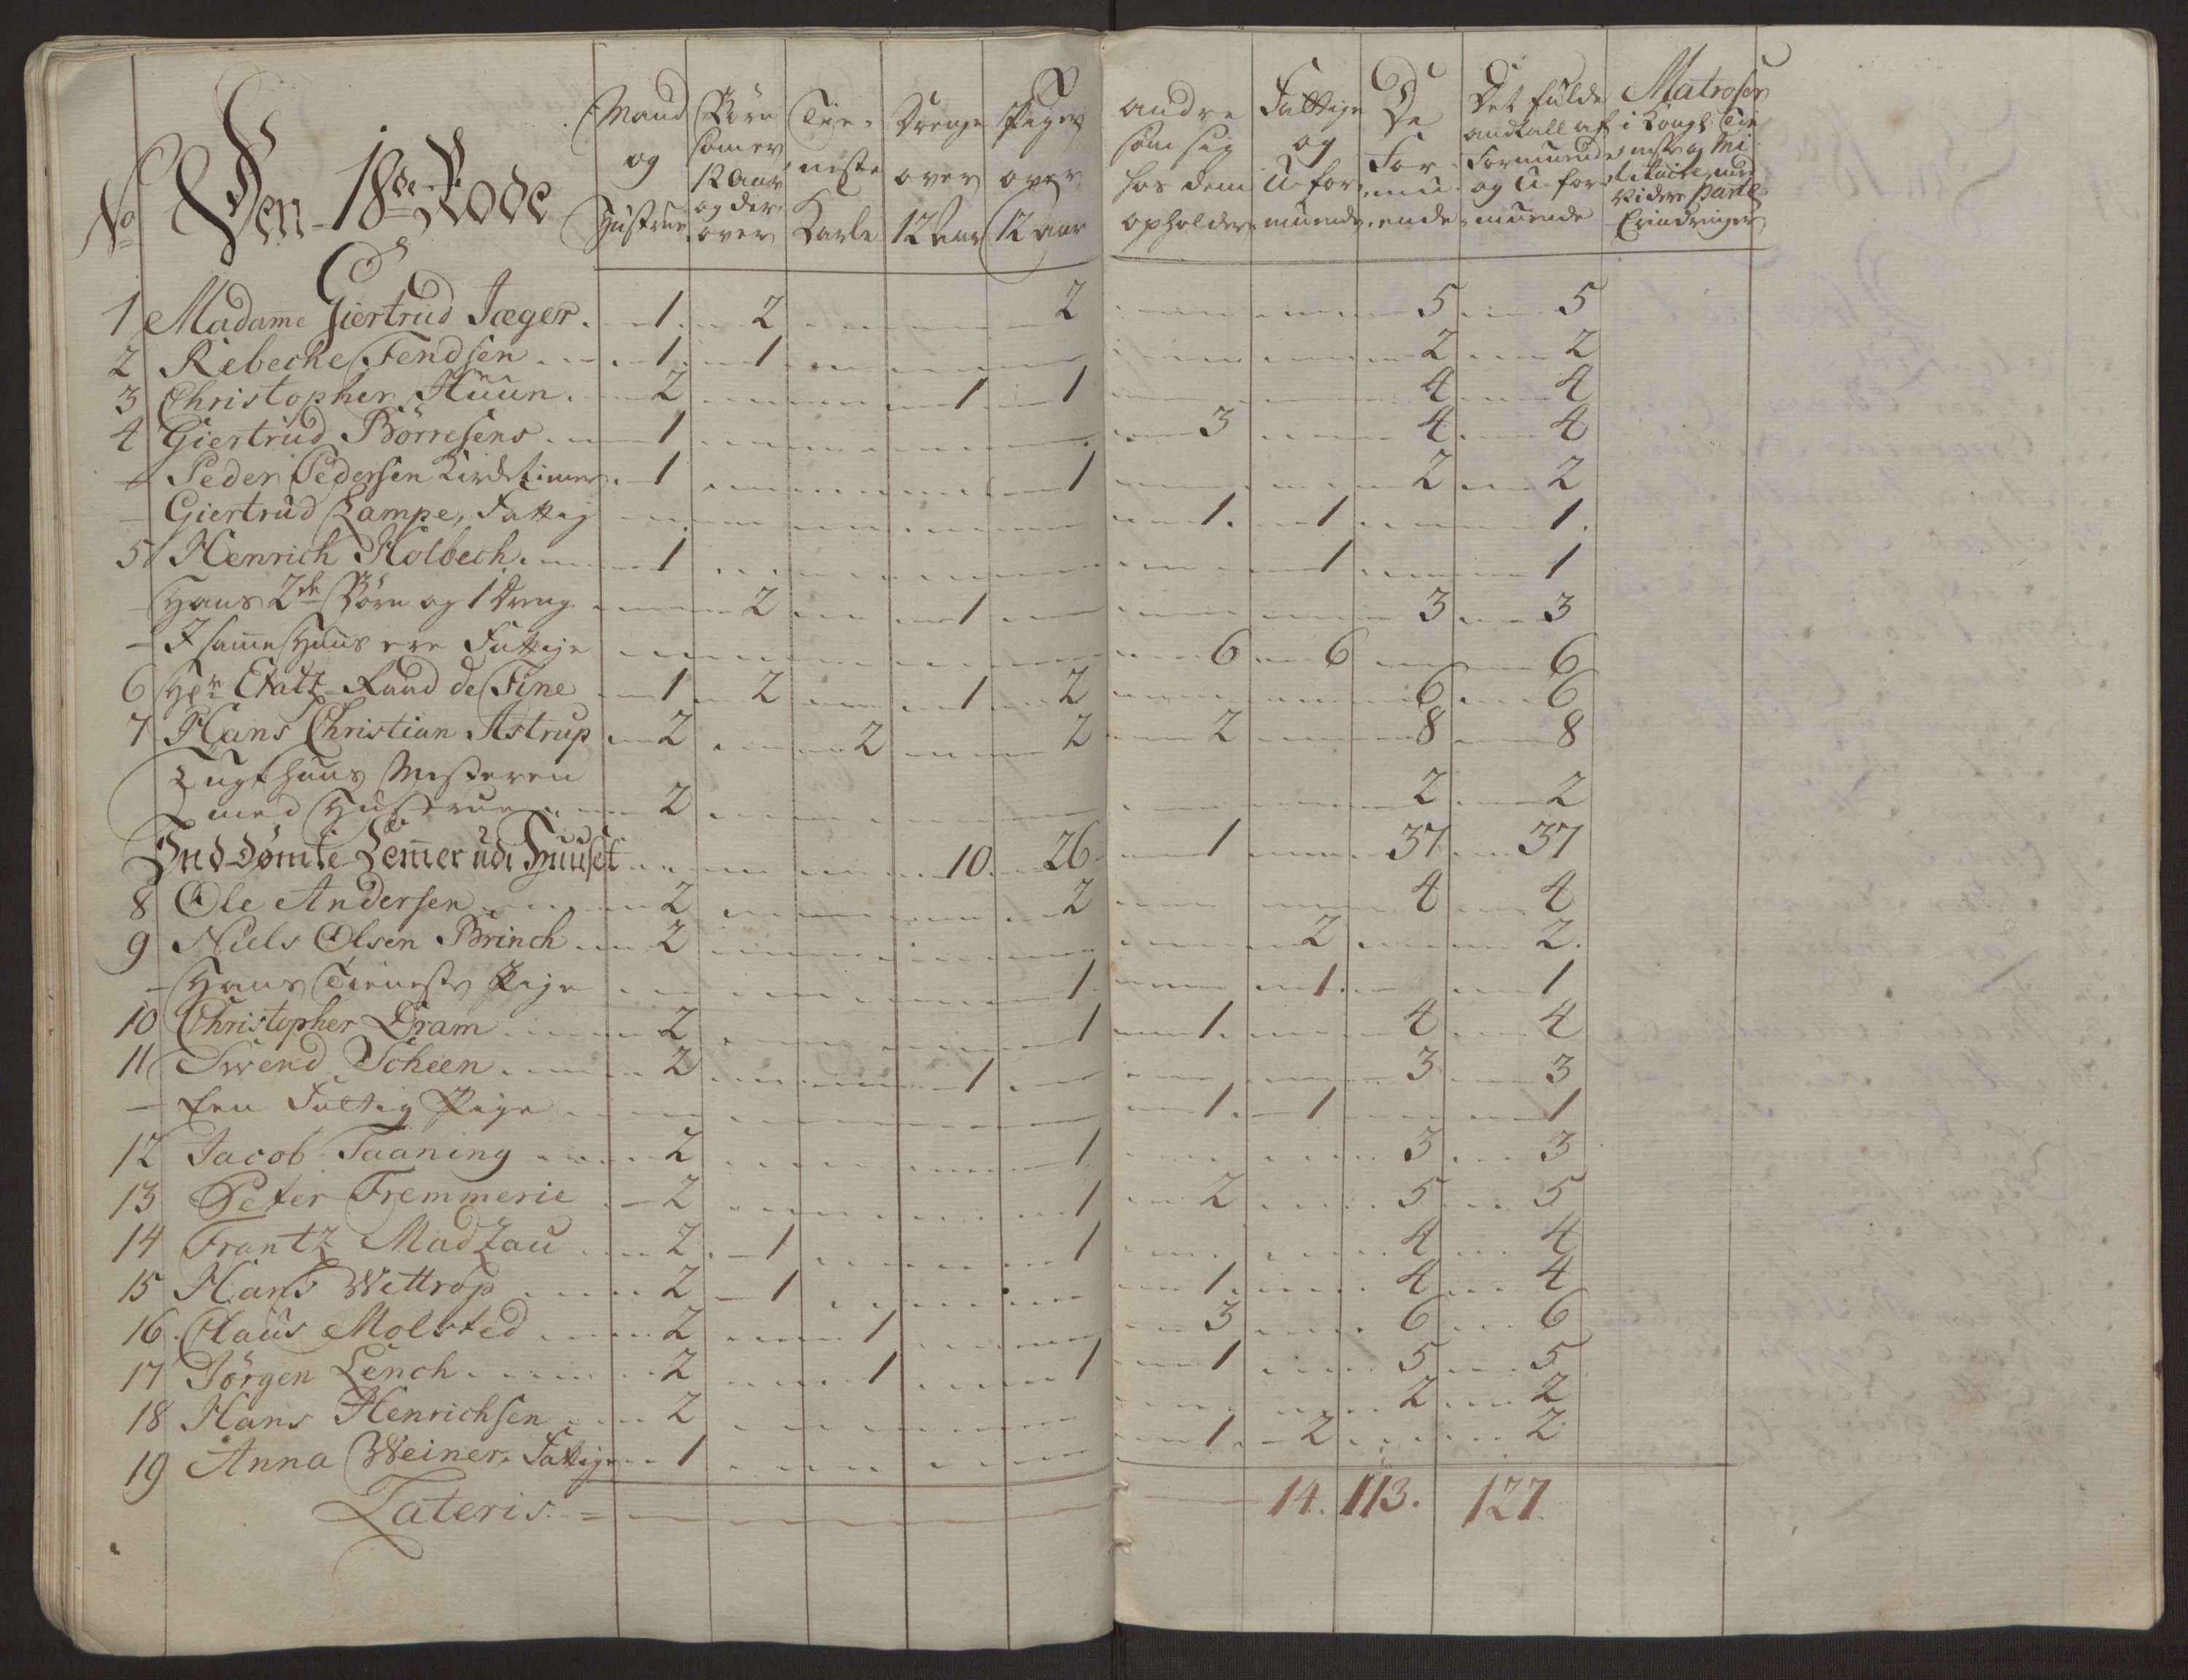 No Den 18de Rode
Mand og Hustrue
Börn som er 12 Aar og der over
Tieneste Karle
Drenge over 12 Aar
Piger over 12 aar
andre som sig hos dem opholder
Fattige og U-formuende
De Formuende
Det fulde andtall af Formuende og U-formuende
Matroser i Kongl: Tieneste og Militaire, med videre Parti Erindringer
1 Madame Giertrud Jæger. 1. 2 2 5 5
2 Rebecke Fendsen 1. 1 2 2
3 Christopher Huun. 2 1 1 4 4
4 Giertrud Börresens 1 3 4 4
- Peder Pedersen 1 1 2 2
- Giertrud Lampe, Fattig 1. 1 1.
5 Henrich Holbech. 1 1 1
- Hans 2de Börn og 1 Dreng 2 1 3 3
- I samme Huus ere Fattige 6 6 6
6 Hr: Etatz-Raad de Fine 1 2 1 2 6 6
7 Hans Christian Astrup 2 2 2 2 8 8
Tugthuus Mesteren
med Hustrue 2 2 2
Ind dømte Lemer udi Huuset 10 26 1 37 37
8 Ole Andersen 2 2 4 4
9 Niels Olsen Brinch 2 2 2.
- Hans Tieneste Pige 1. 1. 1
10 Christopher Cram 2 1 1. 4 4
11 Swend Scheen 2 1 3 3
- Een Fattig Pige 1. 1 1
12 Jacob Taaning 2 1 3 3
13 Peter Fremmerie 2 1 2 5 5
14 Frantz Madzau 2 1 1 4 4
15 Hans Wettrop 2 1 1. 4 4
16. Claus Molsted 2 1 3 6 6
17 Jörgen Lench 2 1 1 1 5 5
18 Hans Henrichsen 2 2 2
19 Anna Weiner, Fattige 1 1. 2 2
Lateris 14. 113. 127.